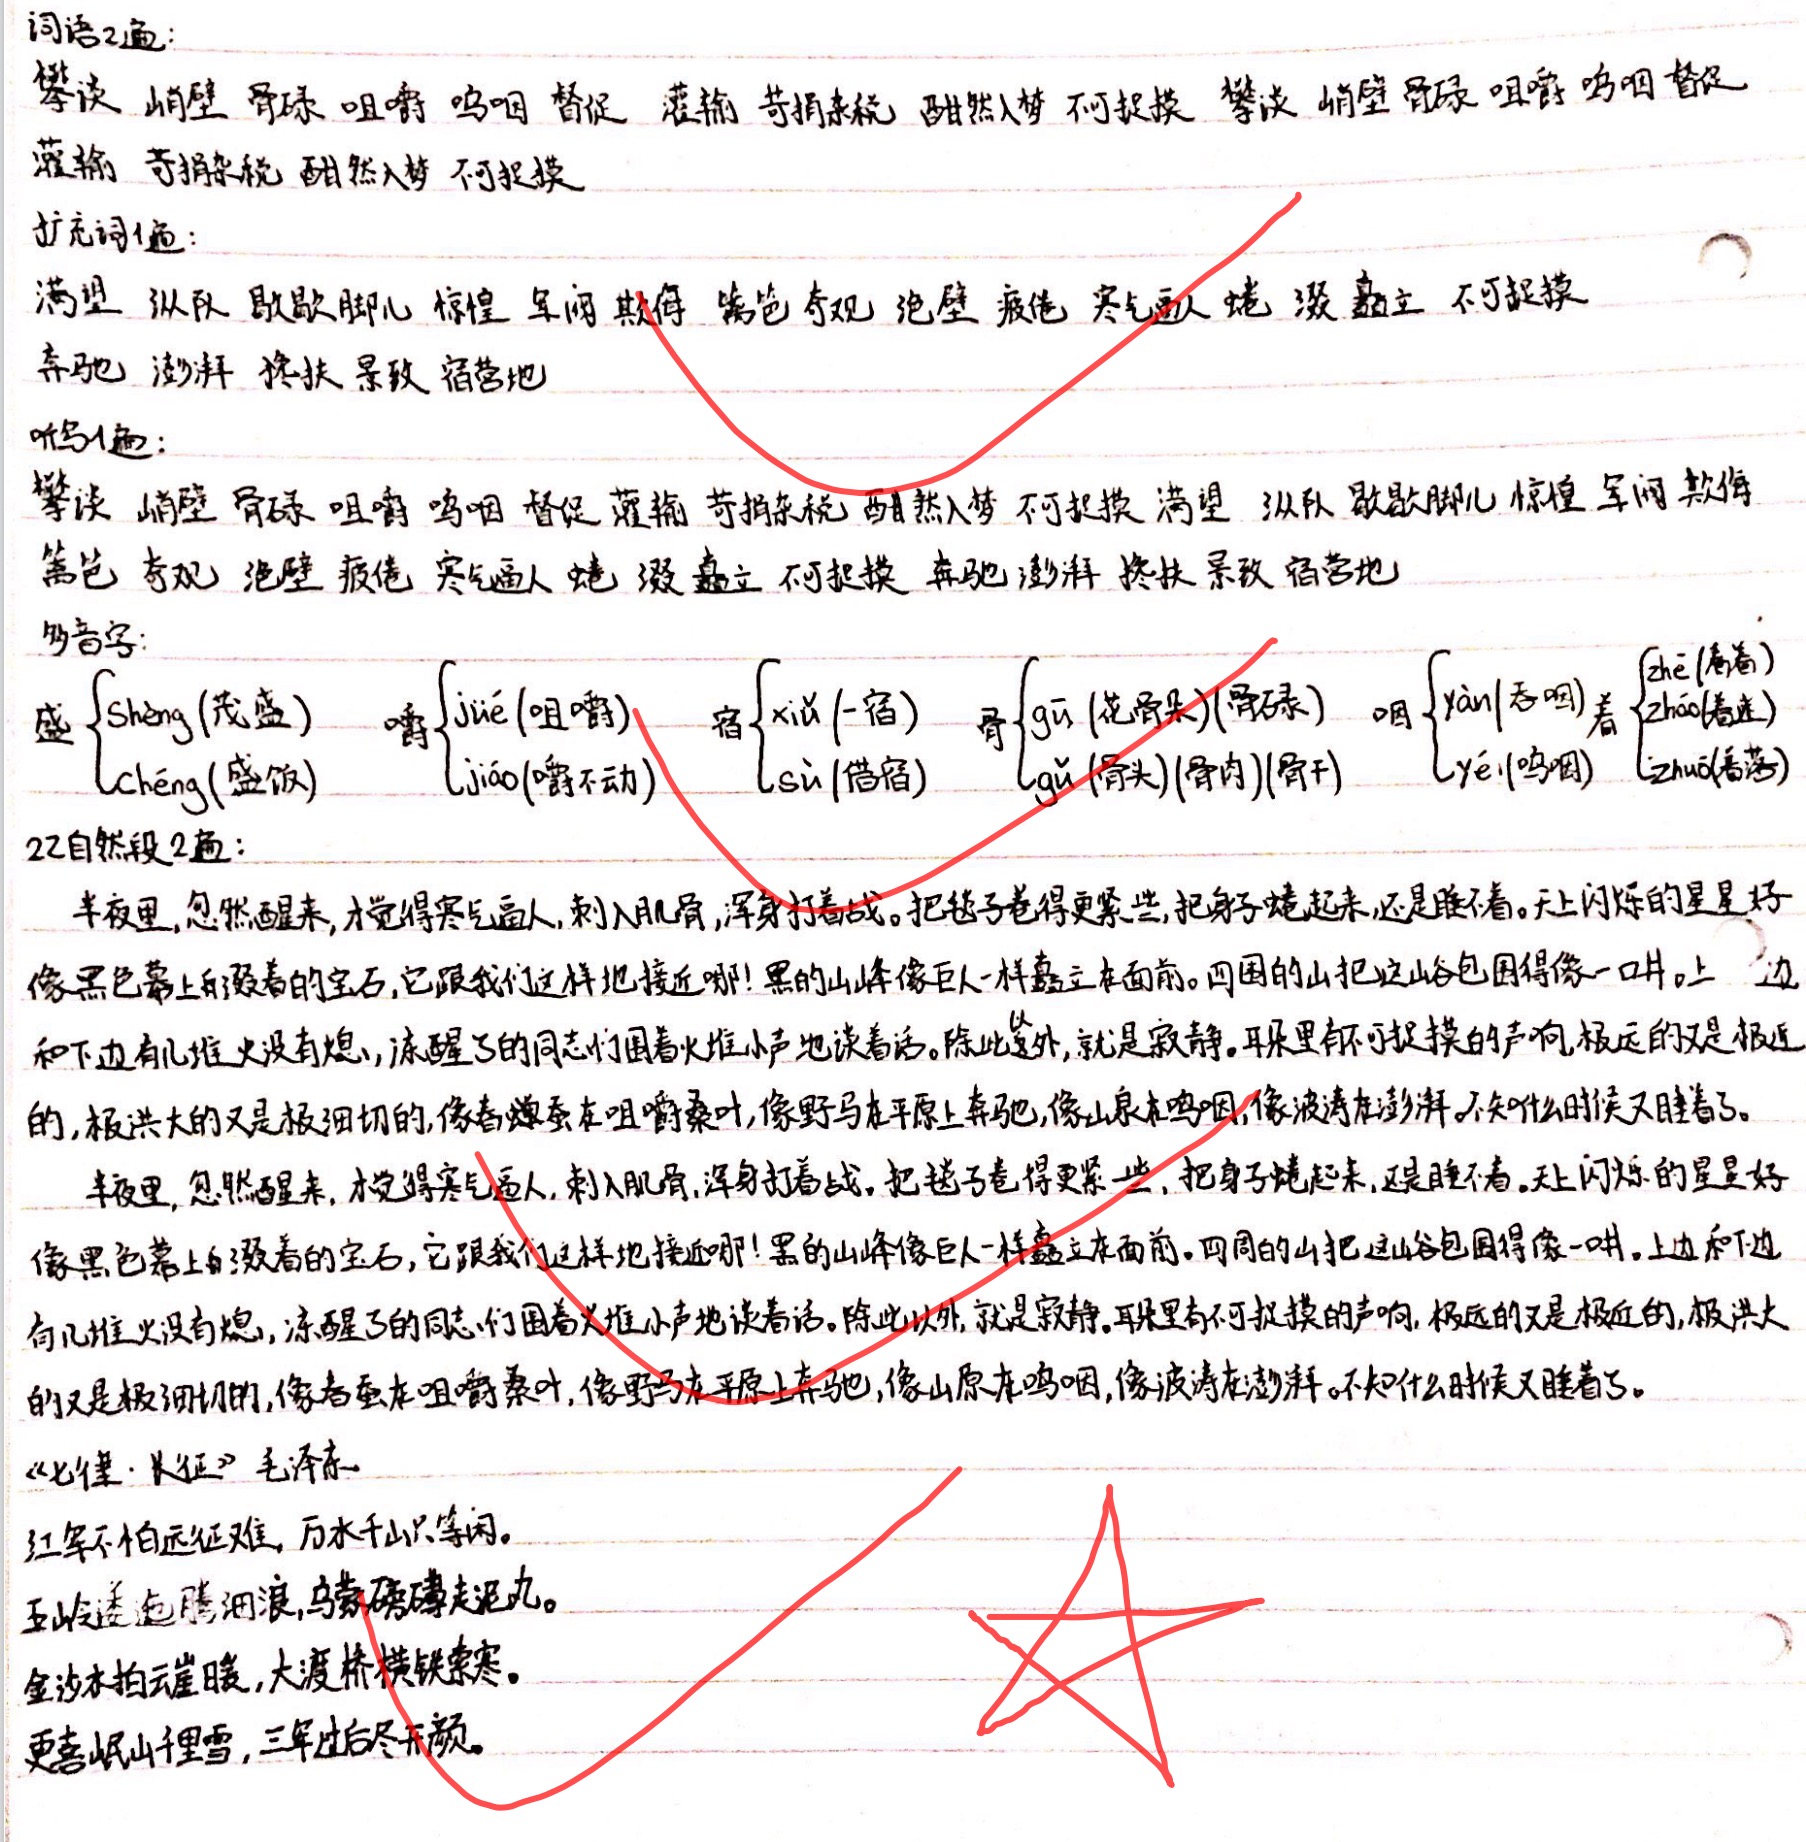 词语2遍:
攀谈 峭壁 骨碌 咀嚼 呜咽 督促 灌输 苛捐杂税 酣然入梦 不可捉摸 攀谈 峭壁 骨碌 咀嚼 呜咽 督促
灌输 苛捐杂税 酣然入梦 不可捉摸
扩充词1遍:
满望 纵队 歇歇脚儿 惊惶 军阀 欺侮 篱笆 奇观 绝壁 疲倦 寒气逼人 蜷 缀 矗立 不可捉摸
奔驰 澎湃 搀扶 景致 宿营地
听写1遍:
攀谈 峭壁 骨碌 咀嚼 呜咽 督促 灌输 苛捐杂税 酣然入梦 不可捉摸 满望 纵队 歇歇脚儿 惊惶 军阀 欺侮
篱笆 奇观 绝壁 疲倦 寒气逼人 蜷 缀 矗立 不可捉摸 奔驰 澎湃 搀扶 景致 宿营地
多音字:
盛 shèng(茂盛) chéng(盛饭) 嚼 jué(咀嚼) jiáo(嚼不动) 宿 xiǔ(一宿) sù(借宿) 骨 gū(花骨朵)(骨碌) gǔ(骨头)(骨肉)(骨干) 咽 yàn(吞咽) yè(呜咽) 着 zhe(看着) zháo(着迷) zhuó(着落)
22自然段2遍:
半夜里,忽然醒来,才觉得寒气逼人,刺入肌骨,浑身打着战。把毯子卷得更紧些,把身子蜷起来,还是睡不着。天上闪烁的星星好
像黑色幕上缀着的宝石,它跟我们这样地接近哪!黑的山峰像巨人一样矗立在面前。四围的山把这山谷包围得像一口井。上边
和下边有几堆火没有熄,冻醒了的同志们围着火堆小声地谈着话。除此以外,就是寂静。耳朵里有不可捉摸的声响,极远的又是极近
的,极洪大的又是极细切的,像春蚕在咀嚼桑叶,像野马在平原上奔驰,像山泉在呜咽,像波涛在澎湃。不知什么时候又睡着了。
半夜里,忽然醒来,才觉得寒气逼人,刺入肌骨,浑身打着战。把毯子卷得更紧一些,把身子蜷起来,还是睡不着。天上闪烁的星星好
像黑色幕上缀着的宝石,它跟我们这样地接近哪!黑的山峰像巨人一样矗立在面前。四周的山把这山谷包围得像一口井。上边和下边
有几堆火没有熄,冻醒了的同志们围着火堆小声地谈着话。除此以外,就是寂静。耳朵里有不可捉摸的声响,极远的又是极近的,极洪大
的又是极细切的,像春蚕在咀嚼桑叶,像野马在平原上奔驰,像山原在呜咽,像波涛在澎湃。不知什么时候又睡着了。
《七律·长征》 毛泽东
红军不怕远征难,万水千山只等闲。
五岭逶迤腾细浪,乌蒙磅礴走泥丸。
金沙水拍云崖暖,大渡桥横铁索寒。
更喜岷山千里雪,三军过后尽开颜。